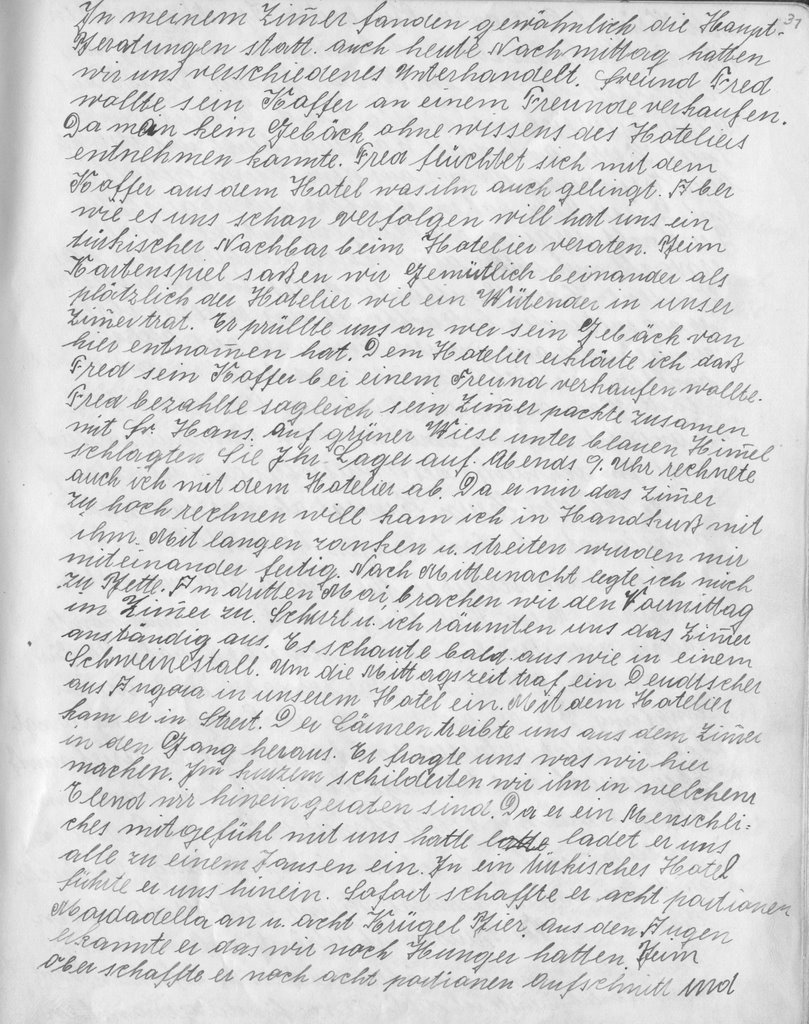 31
In meinem Zim̄er fanden gewöhnlich die Haupt-
Beratungen statt. auch heute Nachmittag hatten
wir uns verschiedenes Unterhandelt. Freund Fred
wollte sein Koffer an einem Freunde verkaufen.
Da man kein Gebäck ohne wissens des Hoteliers
entnehmen konnte. Fred flüchtet sich mit dem
Koffer aus dem Hotel was ihn auch gelingt. Aber
wie es uns schon verfolgen will hat uns ein
türkischer Nachbar beim Hotelier veraten. Beim
Kartenspiel saßen wir Gemütlich beinander als
plötzlich der Hotelier wie ein Wütender in unser
Zim̄er trat. Er prüllte uns an wer sein Gebäck von
hier entnom̄en hat. Dem Hotelier erklärte ich daß
Fred sein Koffer bei einem Freund verkaufen wollte.
Fred bezahlte sogleich sein Zim̄er packte zusamen
mit Fr. Hans. Auf grüner Wiese unter blauen Him̄el
schlagten Sie Ihr Lager auf. Abends 9. Uhr rechnete
auch ich mit dem Hotelier ab. Da er mir das Zim̄er
zu hoch rechnen will kam ich in Handkuß mit
ihm. Mit langen zanken u. streiten wurden mir
miteinander fertig. Nach Mitternacht legte ich mich
zu Bette. Am dritten Mai brachen wir den Vormittag
im Zim̄er zu. Schurl u. ich räumten uns das Zim̄er
anständig aus. Es schaute bald aus wie in einem
Schweinestall. Um die Mittagszeit traf ein Deudtscher
aus Angora in unserem Hotel ein. Mit dem Hotelier
kam er in Streit. Der Lärmen treibte uns aus dem Zim̄er
in den Gang heraus. Er fragte uns was wir hier
machen. Im kurzem schilderten wir ihn in welchem
Elend wir hineingeraten sind. Da er ein Menschli-
ches mitgefühl mit uns hatte ladet er uns
alle zu einem Jausen ein. In ein türkisches Hotel
führte er uns hinein. Sofort schaffte er acht portionen
Mordadella an u. acht Krügel Bier. aus den Augen
erkannte er das wir noch Hunger hatten. Beim
Ober schaffte er noch acht portionen Aufschnitt und